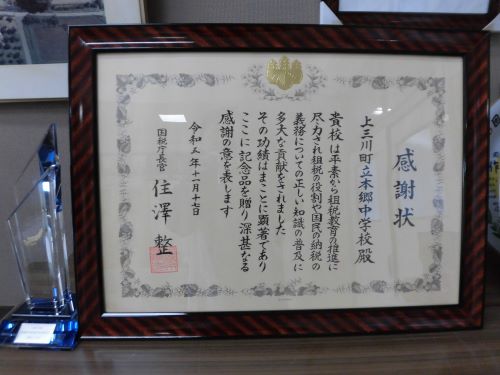 感謝状
上三川町立本郷中学校殿
貴校は平素から租税教育の推進に
尽力され租税の役割や国民の納税の
義務についての正しい知識の普及に
多大な貢献をされました
その功績はまことに顕著であり
ここに記念品を贈り深甚なる
感謝の意を表します
令和五年十一月十七日
国税庁長官 住澤整